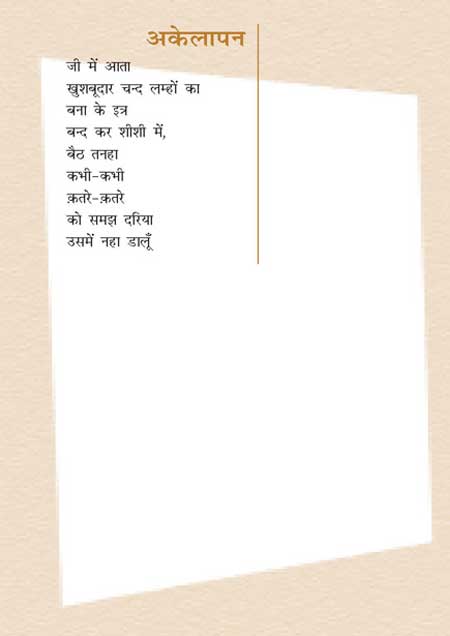 अकेलापन
जी में आता
खुशबूदार चन्द लम्हों का
बना के इत्र
बन्द कर शीशी में,
बैठ तनहा
कभी-कभी
क़तरे-क़तरे
को समझ दरिया
उसमें नहा डालूँ